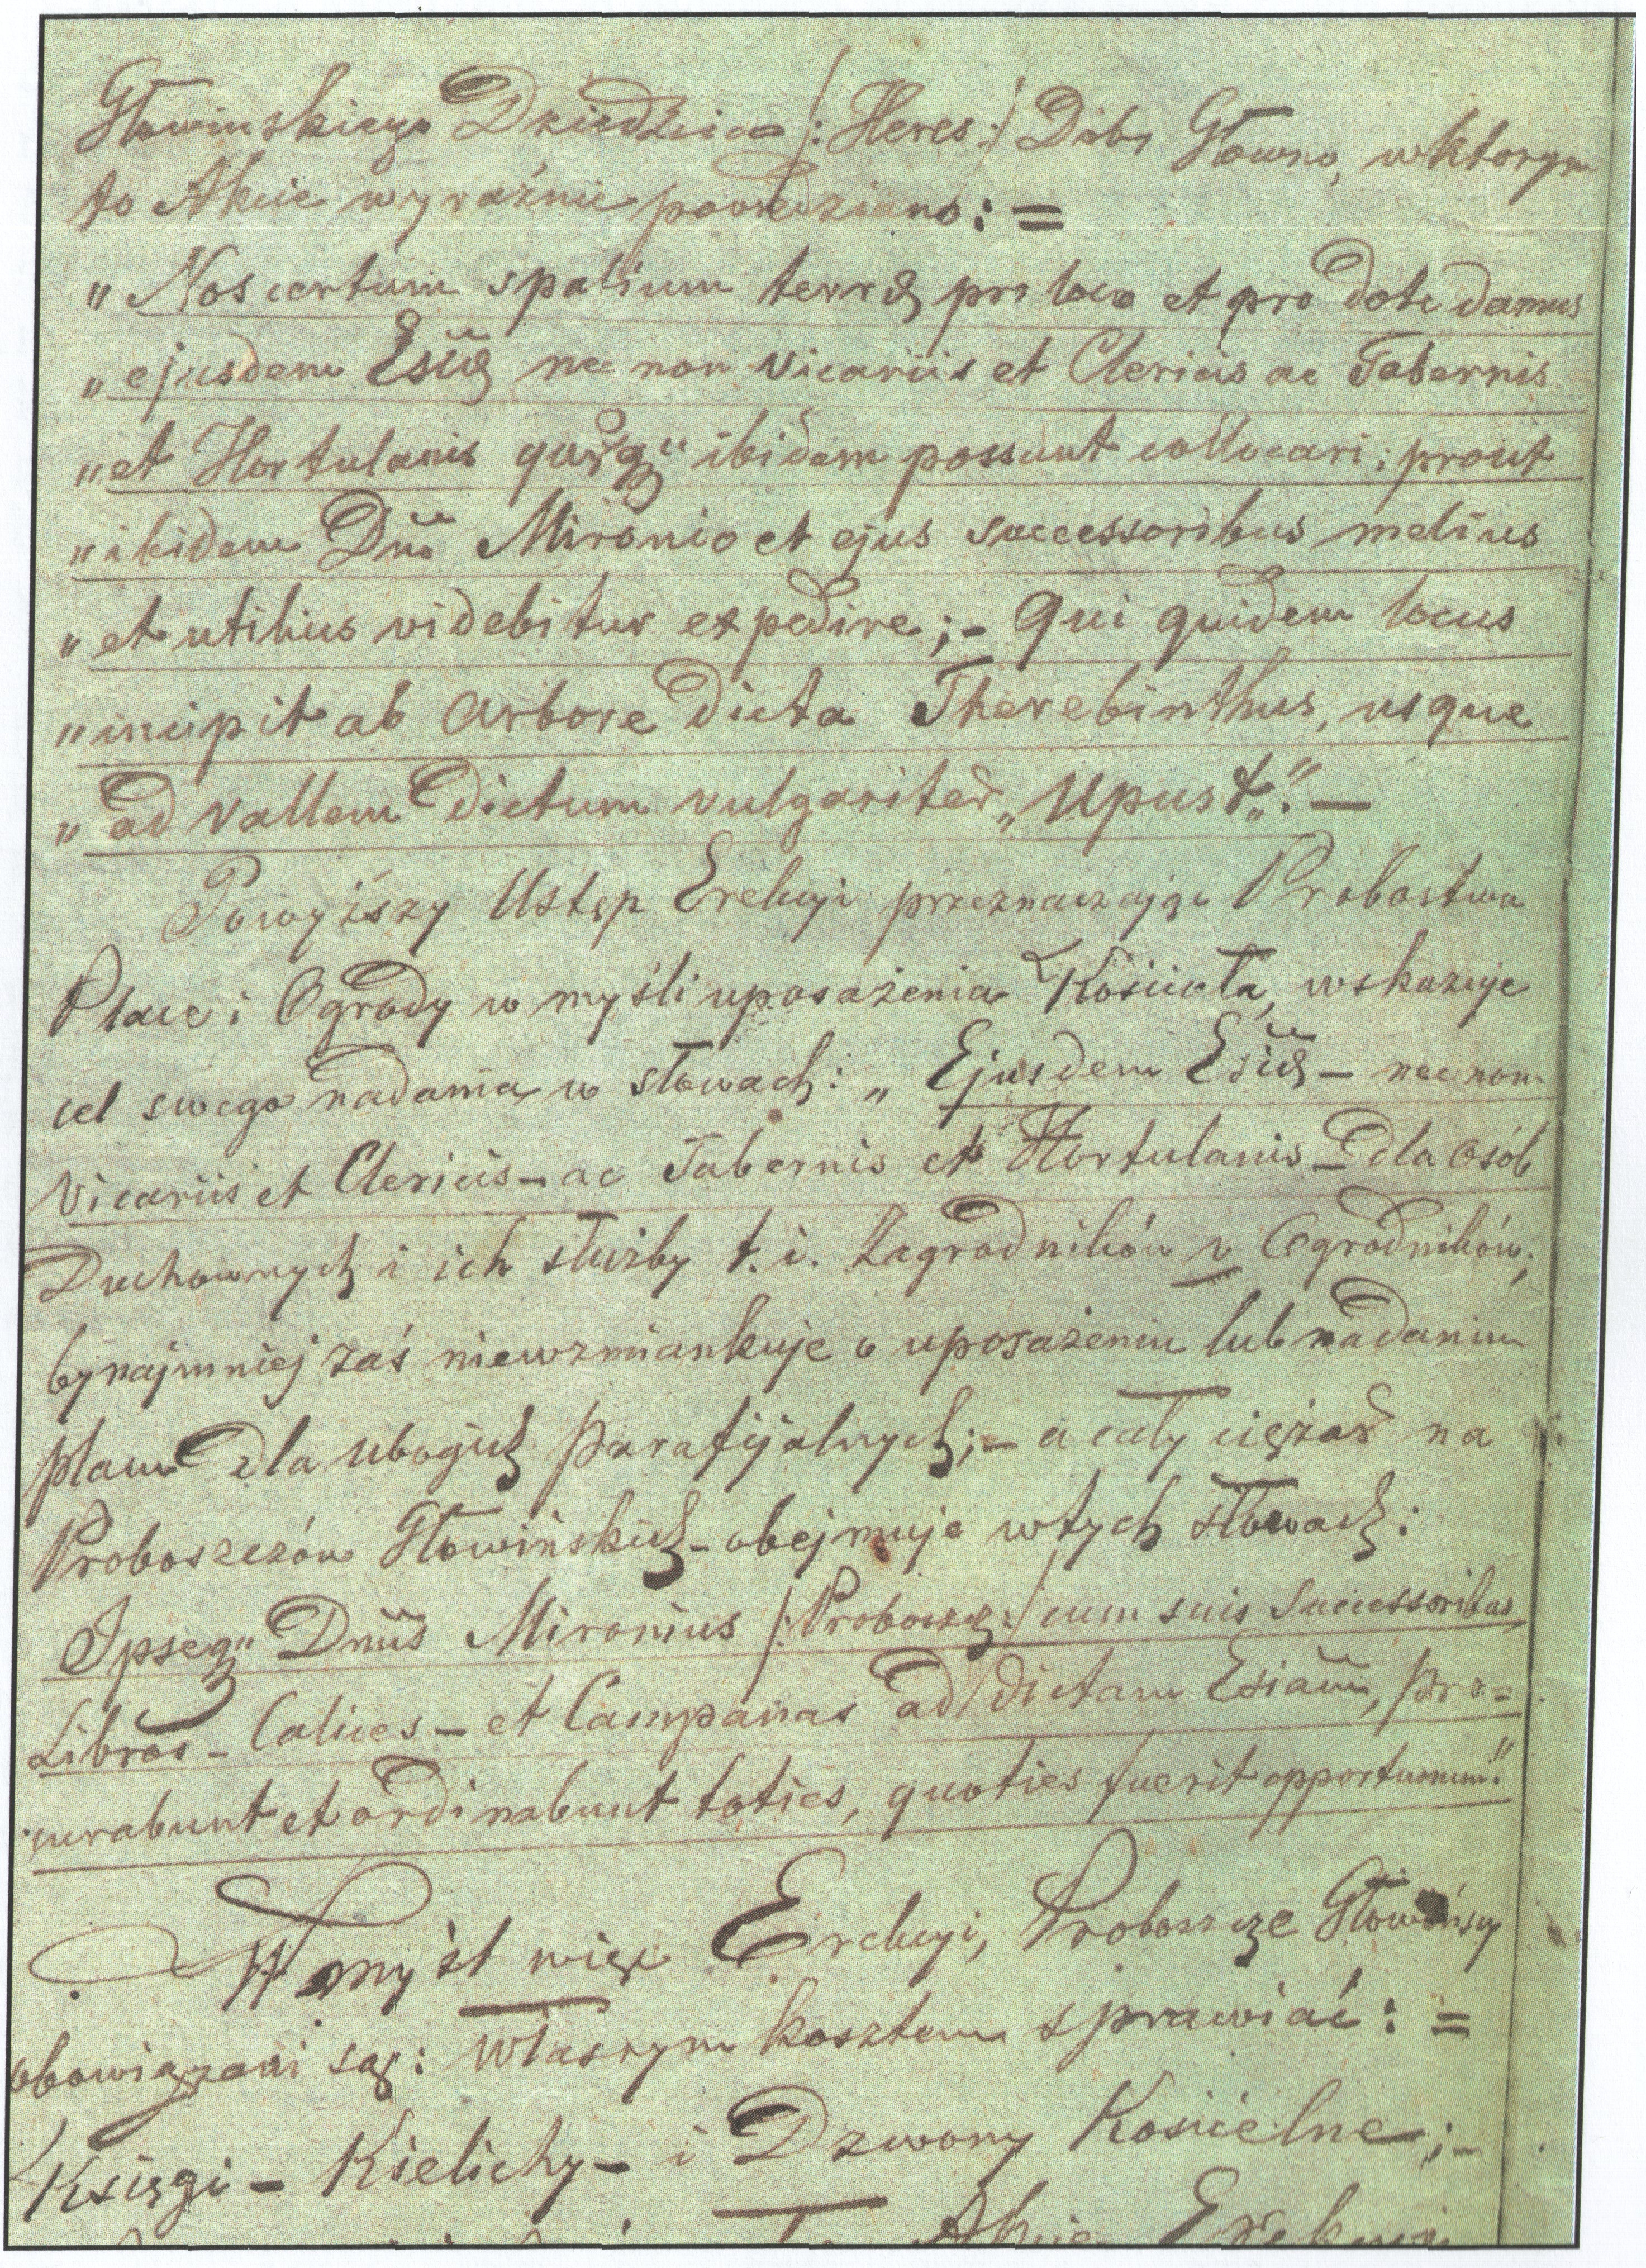 Głowinskiego Dziedzica /: Heres :/ Dóbr Głowno, w ktorym
to Akcie wyraźnie powiedziano: =
„ Nos certum spatium terræ pro loco et pro dote damus
„ ejusdem Esiæ nec non Vicariis et Clericis ac Tabernis
„ et Hortulanis ibidem possunt collocari; prout
„ ibidem Dno Mironio et ejus successoribus melius
„ et utilius videbitur expedire; - Qui quidem locus
„ incipit ab arbore dicta Therebinthus, usque
„ ad vallem dictum vulgariter „Upust„." —
Powyższy Ustęp Erekcyi przeznaczając Probostwu
Place i Ogrody w myśli uposażenia Kościoła, wskazuje
cel swego nadania w słowach: „ Ejusdem Esiæ - necnon
Vicariis et Clericis - ac Tabernis et Hortulanis - dla osób
Duchownych i ich służby t. i. Zagrodników v Ogrodników;
bynajmniej zaś niewzmiankuje o uposażeniu lub nadaniu
placu dla ubogich parafijalnych; - a cały ciężar na
Proboszczów Głowińskich - obejmuje w tych słowach:
Ipseq" Dnus Mironius /: Proboszcz :/ cum suis Successoribus,
Libros - Calices - et Campanas ad dictam Esiam, pro=
curabunt et ordinabunt toties, quoties fuerit opportunum."
W myśl więc Erekcyi, Proboszcze Głowińscy
obowiązani są: własnym kosztem sprawiać: =
Księgi - Kielichy - i Dzwony Kościelne; -
Akcie Erekcyi